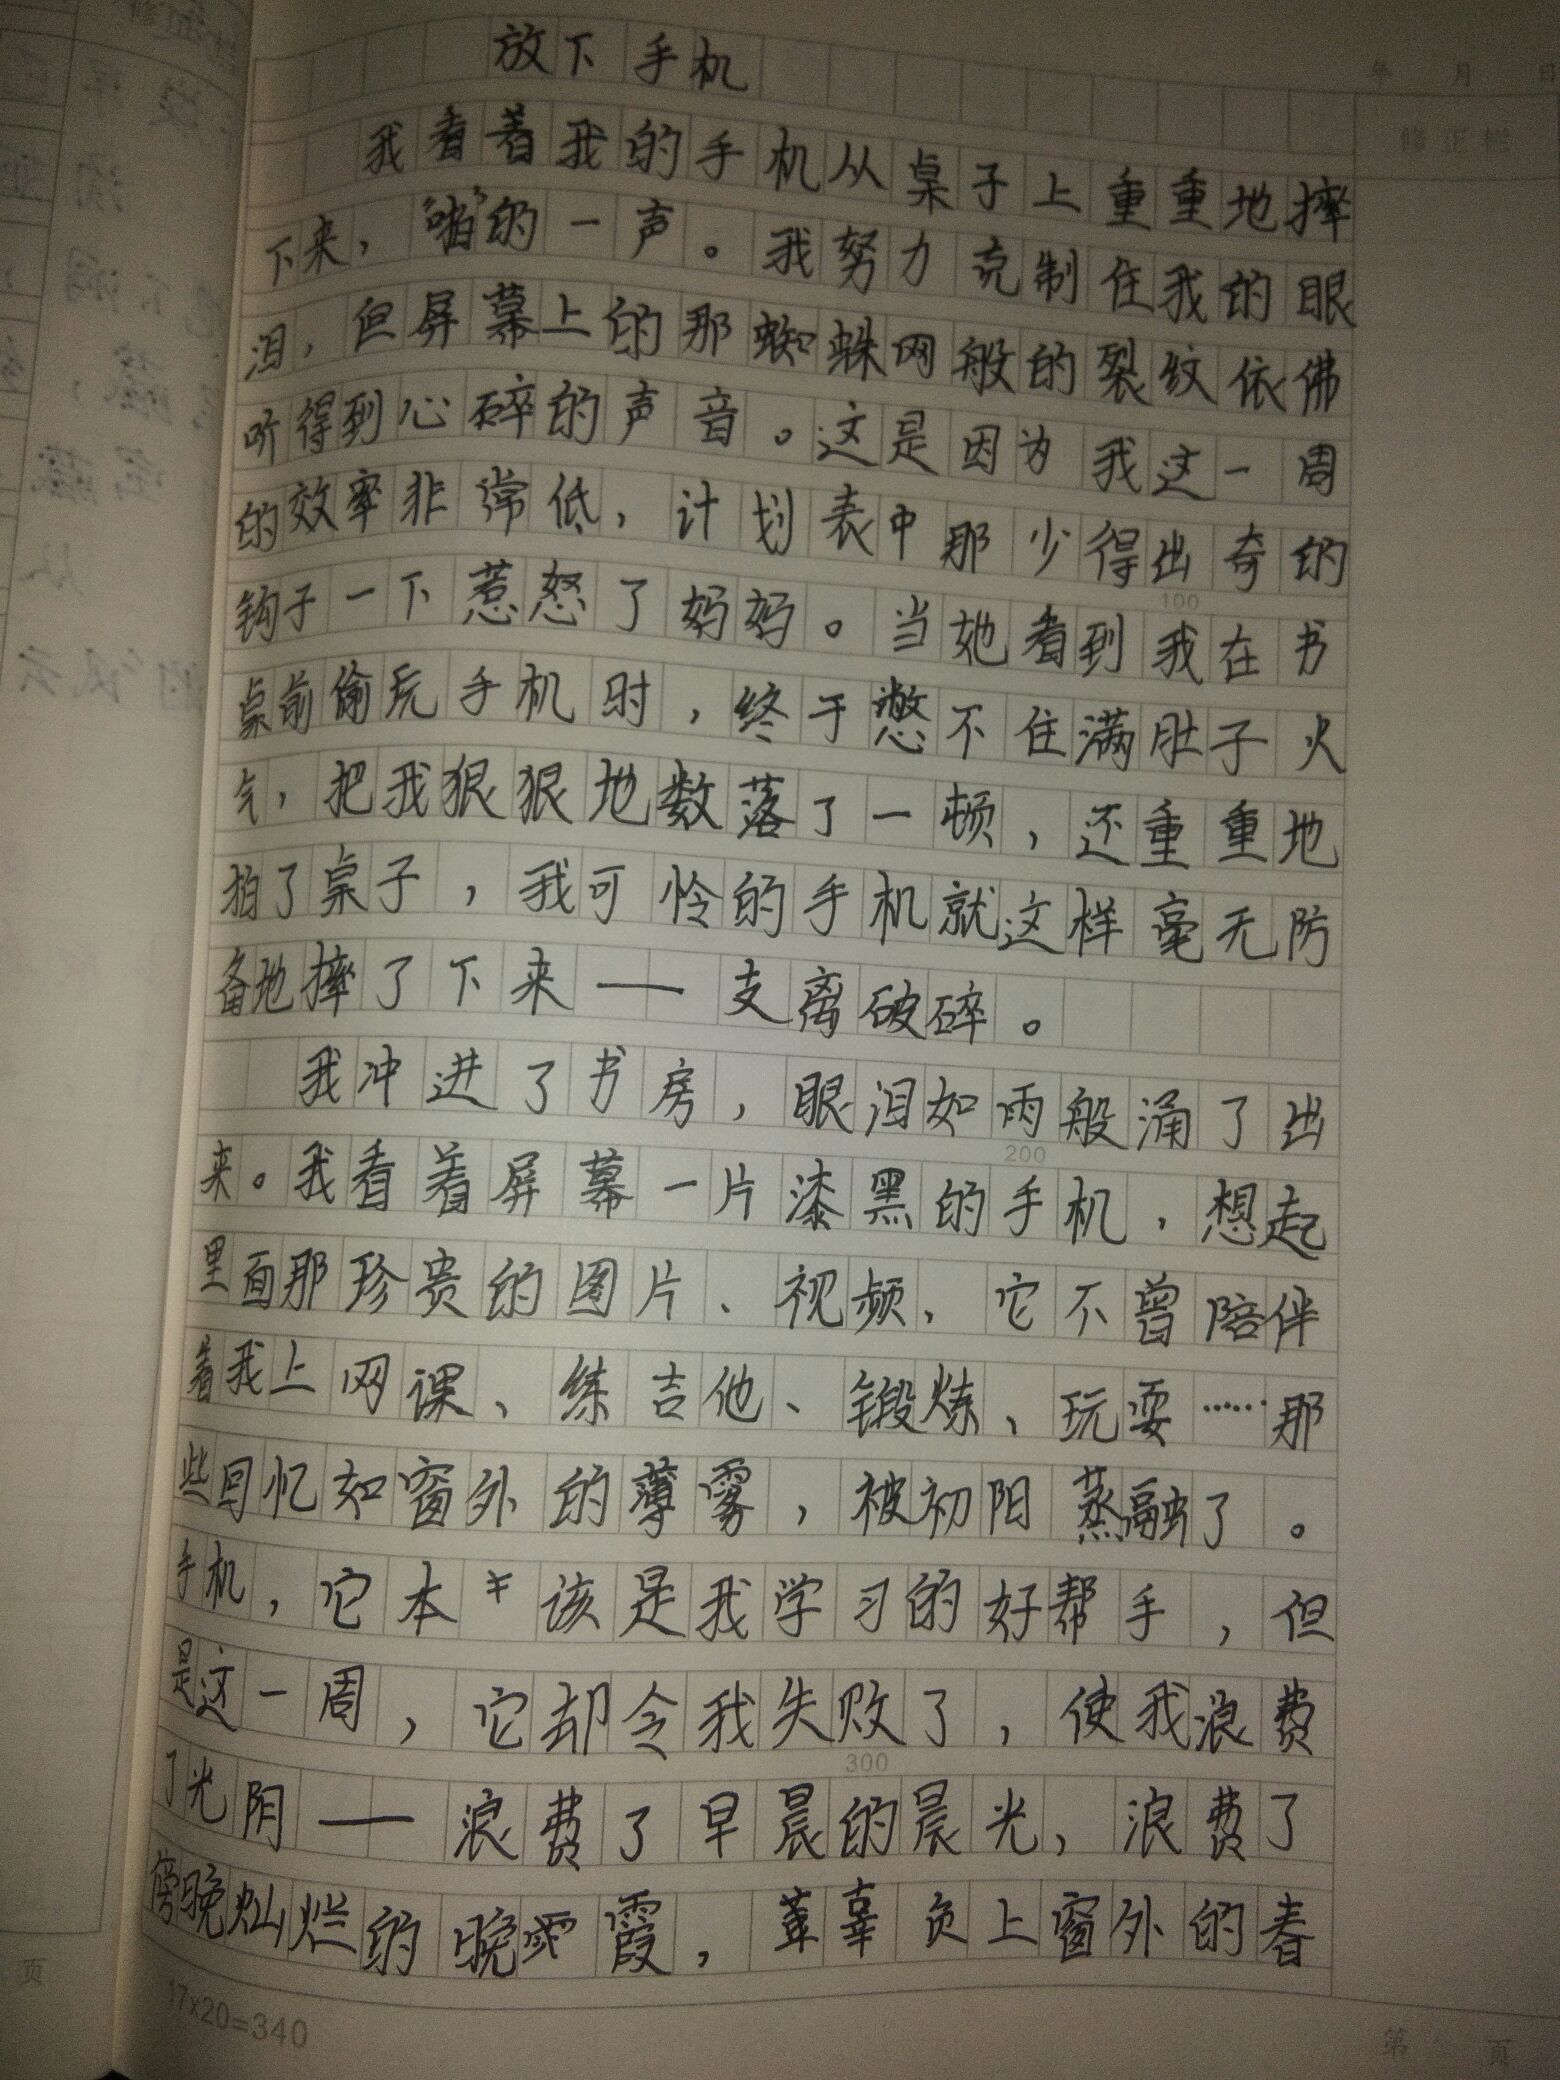 放下手机
我看着我的手机从桌子上重重地摔
下来，“啪”的一声。我努力克制住我的眼
泪，但屏幕上的那蜘蛛网般的裂纹依佛
听得到心碎的声音。这是因为我这一周
的效率非常低，计划表中那少得出奇的
钩子一下惹怒了妈妈。当她看到我在书
桌前偷玩手机时，终于憋不住满肚子火
气，把我狠狠地数落了一顿，还重重地
拍了桌子，我可怜的手机就这样毫无防
备地摔了下来——支离破碎。
我冲进了书房，眼泪如雨般涌了出
来。我看着屏幕一片漆黑的手机，想起
里面那珍贵的图片、视频，它不曾陪伴
着我上网课、练吉他、锻炼、玩耍……那
些回忆如窗外的薄雾，被初阳蒸融了。
手机，它本该是我学习的好帮手，但
是这一周，它却令我失败了，使我浪费
了光阴——浪费了早晨的晨光，浪费了
傍晚灿烂的晚霞，辜负上窗外的春
100
200
300
17×20=340
年 月 日
修正栏
第 页
页